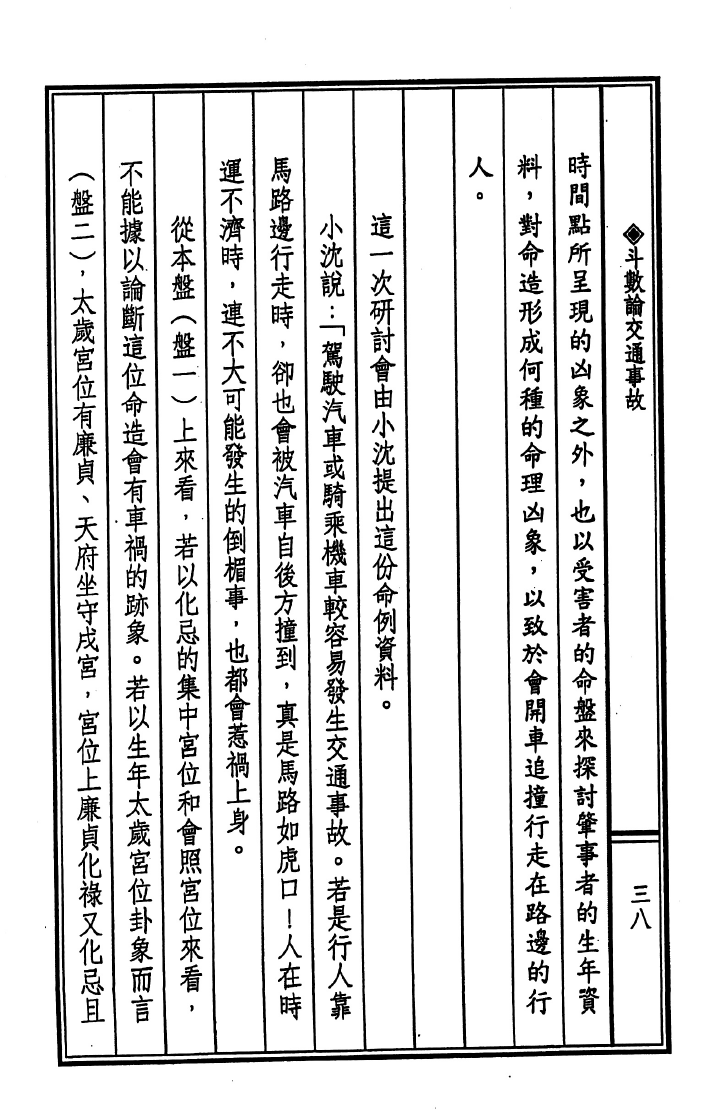 ◈斗數論交通事故
三八
時間點所呈現的凶象之外，也以受害者的命盤來探討肇事者的生年資
料，對命造形成何種的命理凶象，以致於會開車追撞行走在路邊的行
人。
這一次研討會由小沈提出這份命例資料。
小沈說：「駕駛汽車或騎乘機車較容易發生交通事故。若是行人靠
馬路邊行走時，卻也會被汽車自後方撞到，真是馬路如虎口！人在時
運不濟時，連不大可能發生的倒楣事，也都會惹禍上身。
從本盤（盤一）上來看，若以化忌的集中宮位和會照宮位來看，
不能據以論斷這位命造會有車禍的跡象。若以生年太歲宮位卦象而言
（盤二），太歲宮位有廉貞、天府坐守戌宮，宮位上廉貞化祿又化忌且